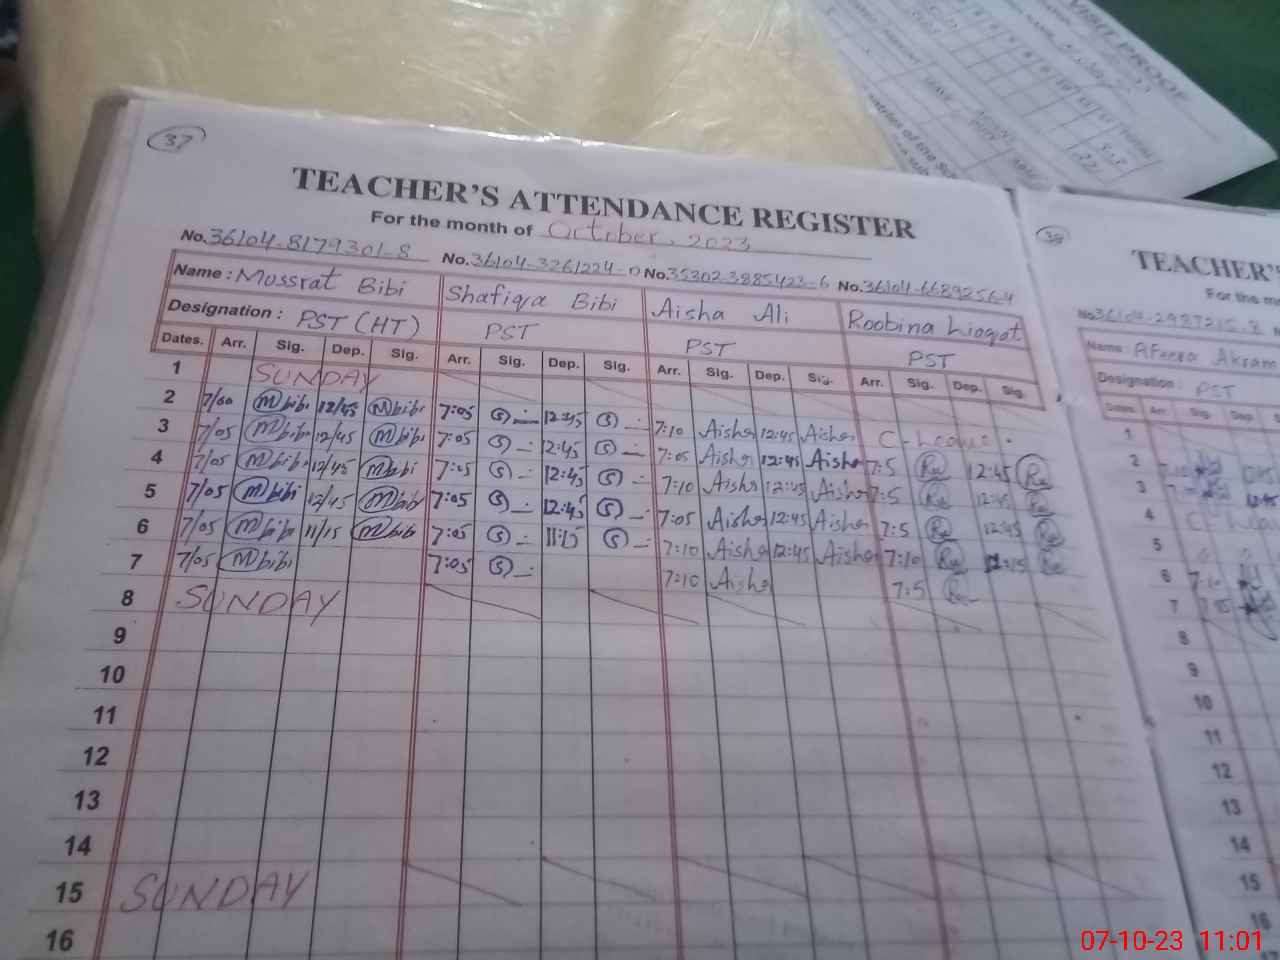 37
TEACHER'S ATTENDANCE REGISTER
For the month of October, 2023
No. 36104-8179301-8 No. 36104-3261224-0 No. 35302-3885423-6 No. 36104-6689256-4
Name : Mussrat Bibi Shafiqa Bibi Aisha Ali Roobina Liaqat
Designation : PST (HT) PST PST PST
Dates. Arr. Sig. Dep. Sig. Arr. Sig. Dep. Sig. Arr. Sig. Dep. Sig. Arr. Sig. Dep. Sig.
1 SUNDAY
2 7/00 M bibi 12/45 M bibi 7:05 S 12:45 S 7:10 Aisha 12:45 Aisha C-Leave
3 7/05 M bibi 12/45 M bibi 7:05 S 12:45 S 7:05 Aisha 12:45 Aisha 7:5 Ru 12:45 Ru
4 7/05 M bibi 12/45 M bibi 7:05 S 12:45 S 7:10 Aisha 12:45 Aisha 7:5 Ru 12:45 Ru
5 7/05 M bibi 12/45 M bibi 7:05 S 12:45 S 7:05 Aisha 12:45 Aisha 7:5 Ru 12:45 Ru
6 7/05 M bibi 11/15 M bibi 7:05 S 11:15 S 7:10 Aisha 12:45 Aisha 7:10 Ru Ru
7 7/05 M bibi 7:05 S 7:10 Aisha 7:5 Ru
8 SUNDAY
9
10
11
12
13
14
15 SUNDAY
16
38
TEACHER'S
For the
No. 36104-2987215-8
Name : Afeera Akram
Designation : PST
Dates Arr. Sig. Dep
1
2
3
4 C-Leave
5
6 7:10
7
8
9
10
11
12
13
14
15
16
07-10-23 11:01